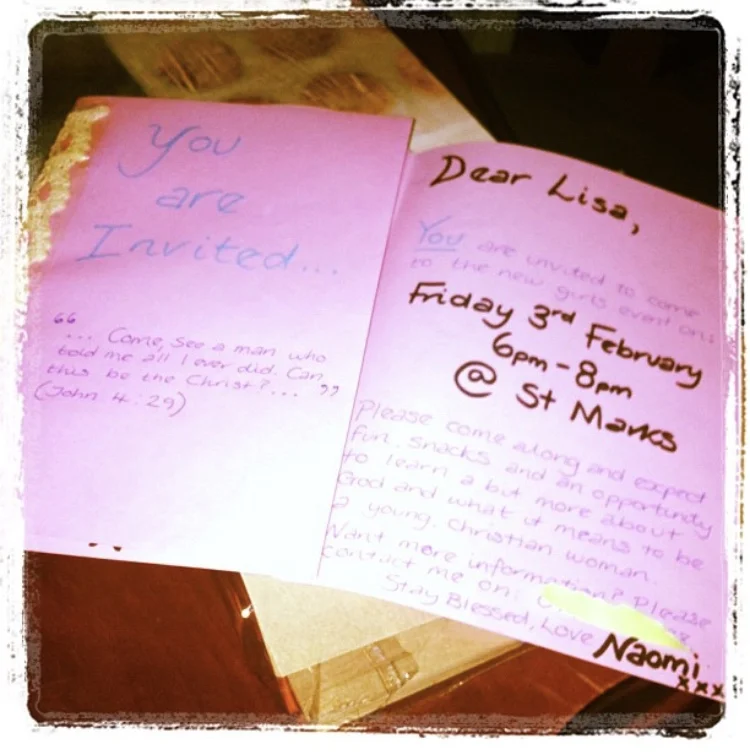 You
are
Invited...
“
... Come, see a man who
told me all I ever did. Can
this be the Christ?... ”
(John 4:29)
Dear Lisa,
You are invited to come
to the new girls event on:
Friday 3rd February
6pm - 8pm
@ St Marks
Please come along and expect
fun, snacks and an opportunity
to learn a but more about
God and what it means to be
a young, Christian woman.
Want more information? Please
contact me on:
Stay Blessed, Love Naomi
xxx